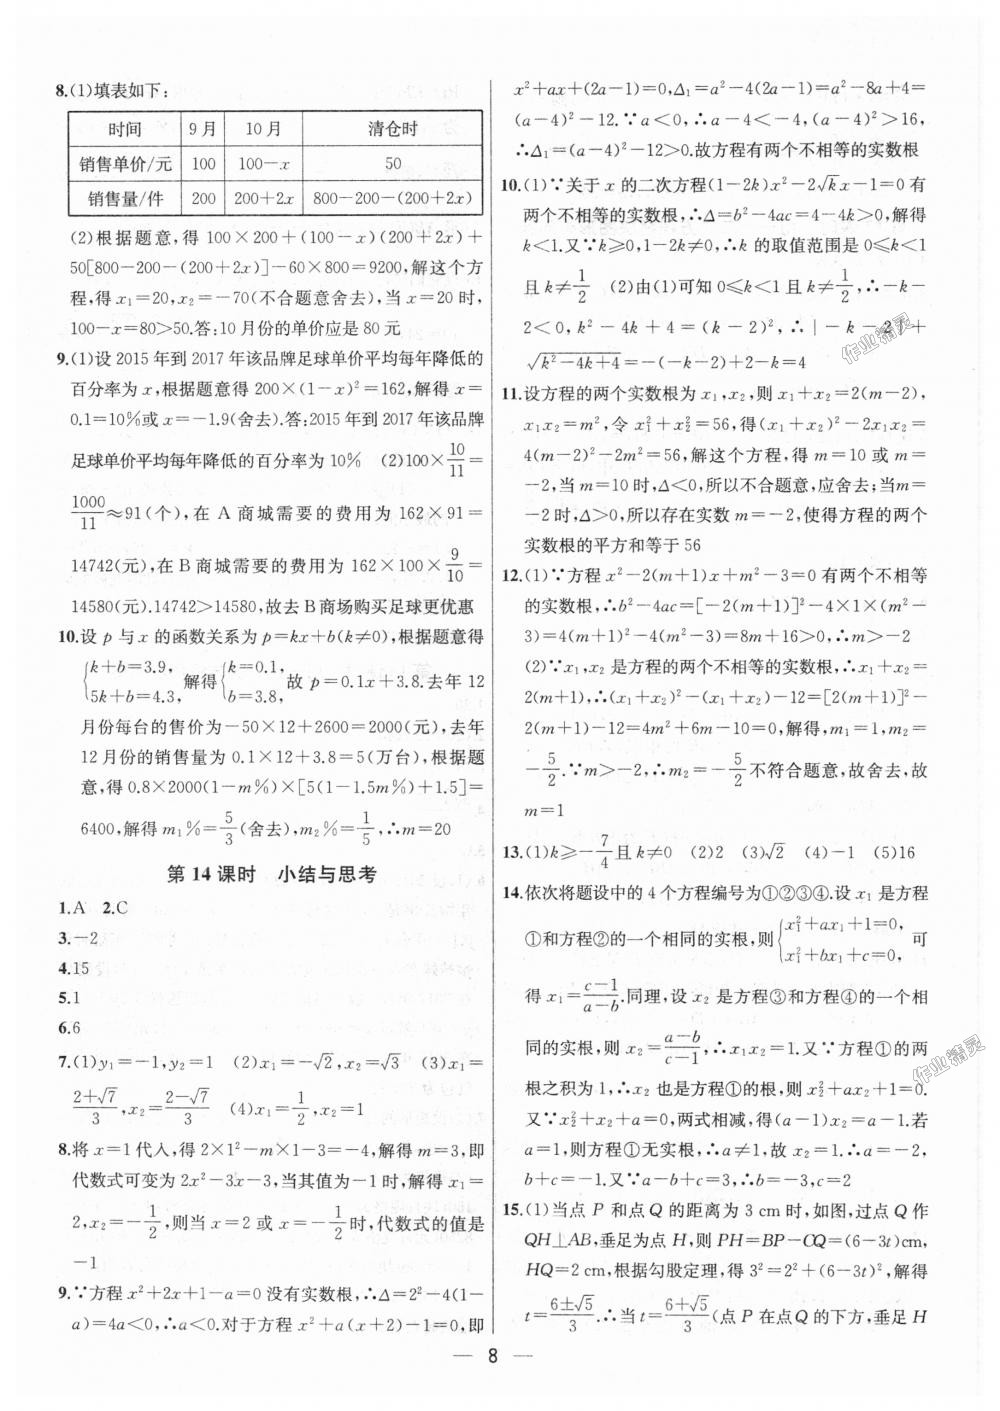 8.(1)填表如下:
时间 9月 10月 清仓时
销售单价/元 100 100−x 50
销售量/件 200 200+2x 800−200−(200+2x)
(2)根据题意,得 100×200+(100−x)(200+2x)+
50[800−200−(200+2x)]−60×800=9200,解这个方
程,得 x₁=20,x₂=−70(不合题意舍去),当 x=20 时,
100−x=80>50.答:10月份的单价应是 80 元
9.(1)设 2015 年到 2017 年该品牌足球单价平均每年降低的
百分率为 x,根据题意得 200×(1−x)²=162,解得 x=
0.1=10%或 x=−1.9(舍去).答:2015年到 2017年该品牌
足球单价平均每年降低的百分率为 10% (2)100×10/11=
1000/11≈91(个),在 A 商城需要的费用为 162×91=
14742(元),在 B 商城需要的费用为 162×100×9/10=
14580(元).14742>14580,故去 B 商场购买足球更优惠
10.设 p 与 x 的函数关系为 p=kx+b(k≠0),根据题意得
{k+b=3.9, 5k+b=4.3, 解得 {k=0.1, b=3.8, 故 p=0.1x+3.8.去年 12
月份每台的售价为−50×12+2600=2000(元),去年
12 月份的销售量为 0.1×12+3.8=5(万台),根据题
意,得 0.8×2000(1−m%)×[5(1−1.5m%)+1.5]=
6400,解得 m₁%=5/3(舍去),m₂%=1/5,∴m=20
第 14 课时 小结与思考
1.A 2.C
3.−2
4.15
5.1
6.6
7.(1)y₁=−1,y₂=1 (2)x₁=−√2,x₂=√3 (3)x₁=
(2+√7)/3,x₂=(2−√7)/3 (4)x₁=1/2,x₂=1
8.将 x=1 代入,得 2×1²−m×1−3=−4,解得 m=3,即
代数式可变为 2x²−3x−3,当其值为−1 时,解得 x₁=
2,x₂=−1/2,则当 x=2 或 x=−1/2时,代数式的值是
−1
9.∵方程 x²+2x+1−a=0 没有实数根,∴Δ=2²−4(1−
a)=4a<0,∴a<0.对于方程 x²+a(x+2)−1=0,即
x²+ax+(2a−1)=0,Δ₁=a²−4(2a−1)=a²−8a+4=
(a−4)²−12.∵a<0,∴a−4<−4,(a−4)²>16,
∴Δ₁=(a−4)²−12>0.故方程有两个不相等的实数根
10.(1)∵关于 x 的二次方程(1−2k)x²−2√k x−1=0 有
两个不相等的实数根,∴Δ=b²−4ac=4−4k>0,解得
k<1.又∵k≥0,1−2k≠0,∴k 的取值范围是 0≤k<1
且 k≠1/2 (2)由(1)可知 0≤k<1 且 k≠1/2,∴−k−
2<0,k²−4k+4=(k−2)²>0,∴|−k−2|+
√(k²−4k+4)=−(−k−2)+2−k=4
11.设方程的两个实数根为 x₁,x₂,则 x₁+x₂=2(m−2),
x₁x₂=m²,令 x₁²+x₂²=56,得(x₁+x₂)²−2x₁x₂=
4(m−2)²−2m²=56,解这个方程,得 m=10 或 m=
−2,当 m=10 时,Δ<0,所以不合题意,应舍去;当m=
−2时,Δ>0,所以存在实数 m=−2,使得方程的两个
实数根的平方和等于 56
12.(1)∵方程 x²−2(m+1)x+m²−3=0 有两个不相等
的实数根,∴b²−4ac=[−2(m+1)]²−4×1×(m²−
3)=4(m+1)²−4(m²−3)=8m+16>0,∴m>−2
(2)∵x₁,x₂ 是方程的两个不相等的实数根,∴x₁+x₂=
2(m+1),∴(x₁+x₂)²−(x₁+x₂)−12=[2(m+1)]²−
2(m+1)−12=4m²+6m−10=0,解得,m₁=1,m₂=
−5/2.∵m>−2,∴m₂=−5/2不符合题意,故舍去,故
m=1
13.(1)k≥−7/4且 k≠0 (2)2 (3)√2 (4)−1 (5)16
14.依次将题设中的 4 个方程编号为①②③④.设 x₁ 是方程
①和方程②的一个相同的实根,则{x₁²+ax₁+1=0, x₁²+bx₁+c=0, 可
得 x₁=(c−1)/(a−b).同理,设 x₂ 是方程③和方程④的一个相
同的实根,则 x₂=(a−b)/(c−1),∴x₁x₂=1.又∵方程①的两
根之积为 1,∴x₂ 也是方程①的根,则 x₂²+ax₂+1=0.
又∵x₂²+x₂+a=0,两式相减,得(a−1)x₂=a−1.若
a=1,则方程①无实根,∴a≠1,故 x₂=1.∴a=−2,
b+c=−1.又∵a−b+c=3,∴b=−3,c=2
15.(1)当点 P 和点 Q 的距离为 3 cm时,如图,过点 Q 作
QH⊥AB,垂足为点 H,则 PH=BP−CQ=(6−3t)cm,
HQ=2 cm,根据勾股定理,得 3²=2²+(6−3t)²,解得
t=(6±√5)/3.∴当 t=(6+√5)/3(点 P 在点 Q 的下方,垂足 H
— 8 —
作业精灵
作业精灵